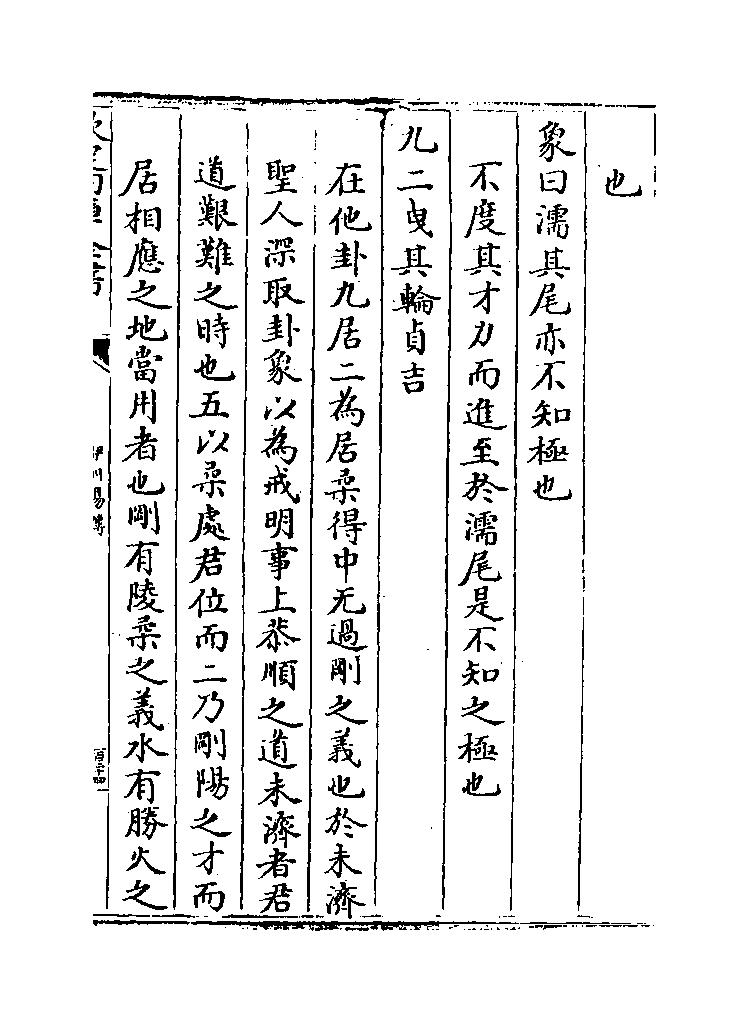 也
象曰濡其尾亦不知極也
不度其才力而進至於濡尾是不知之極也
九二曳其輪貞吉
在他卦九居二為居柔得中无過剛之義也於未濟
聖人深取卦象以為戒明事上恭順之道未濟者君
道艱難之時也五以柔處君位而二乃剛陽之才而
居相應之地當用者也剛有陵柔之義水有勝火之
伊川易傳